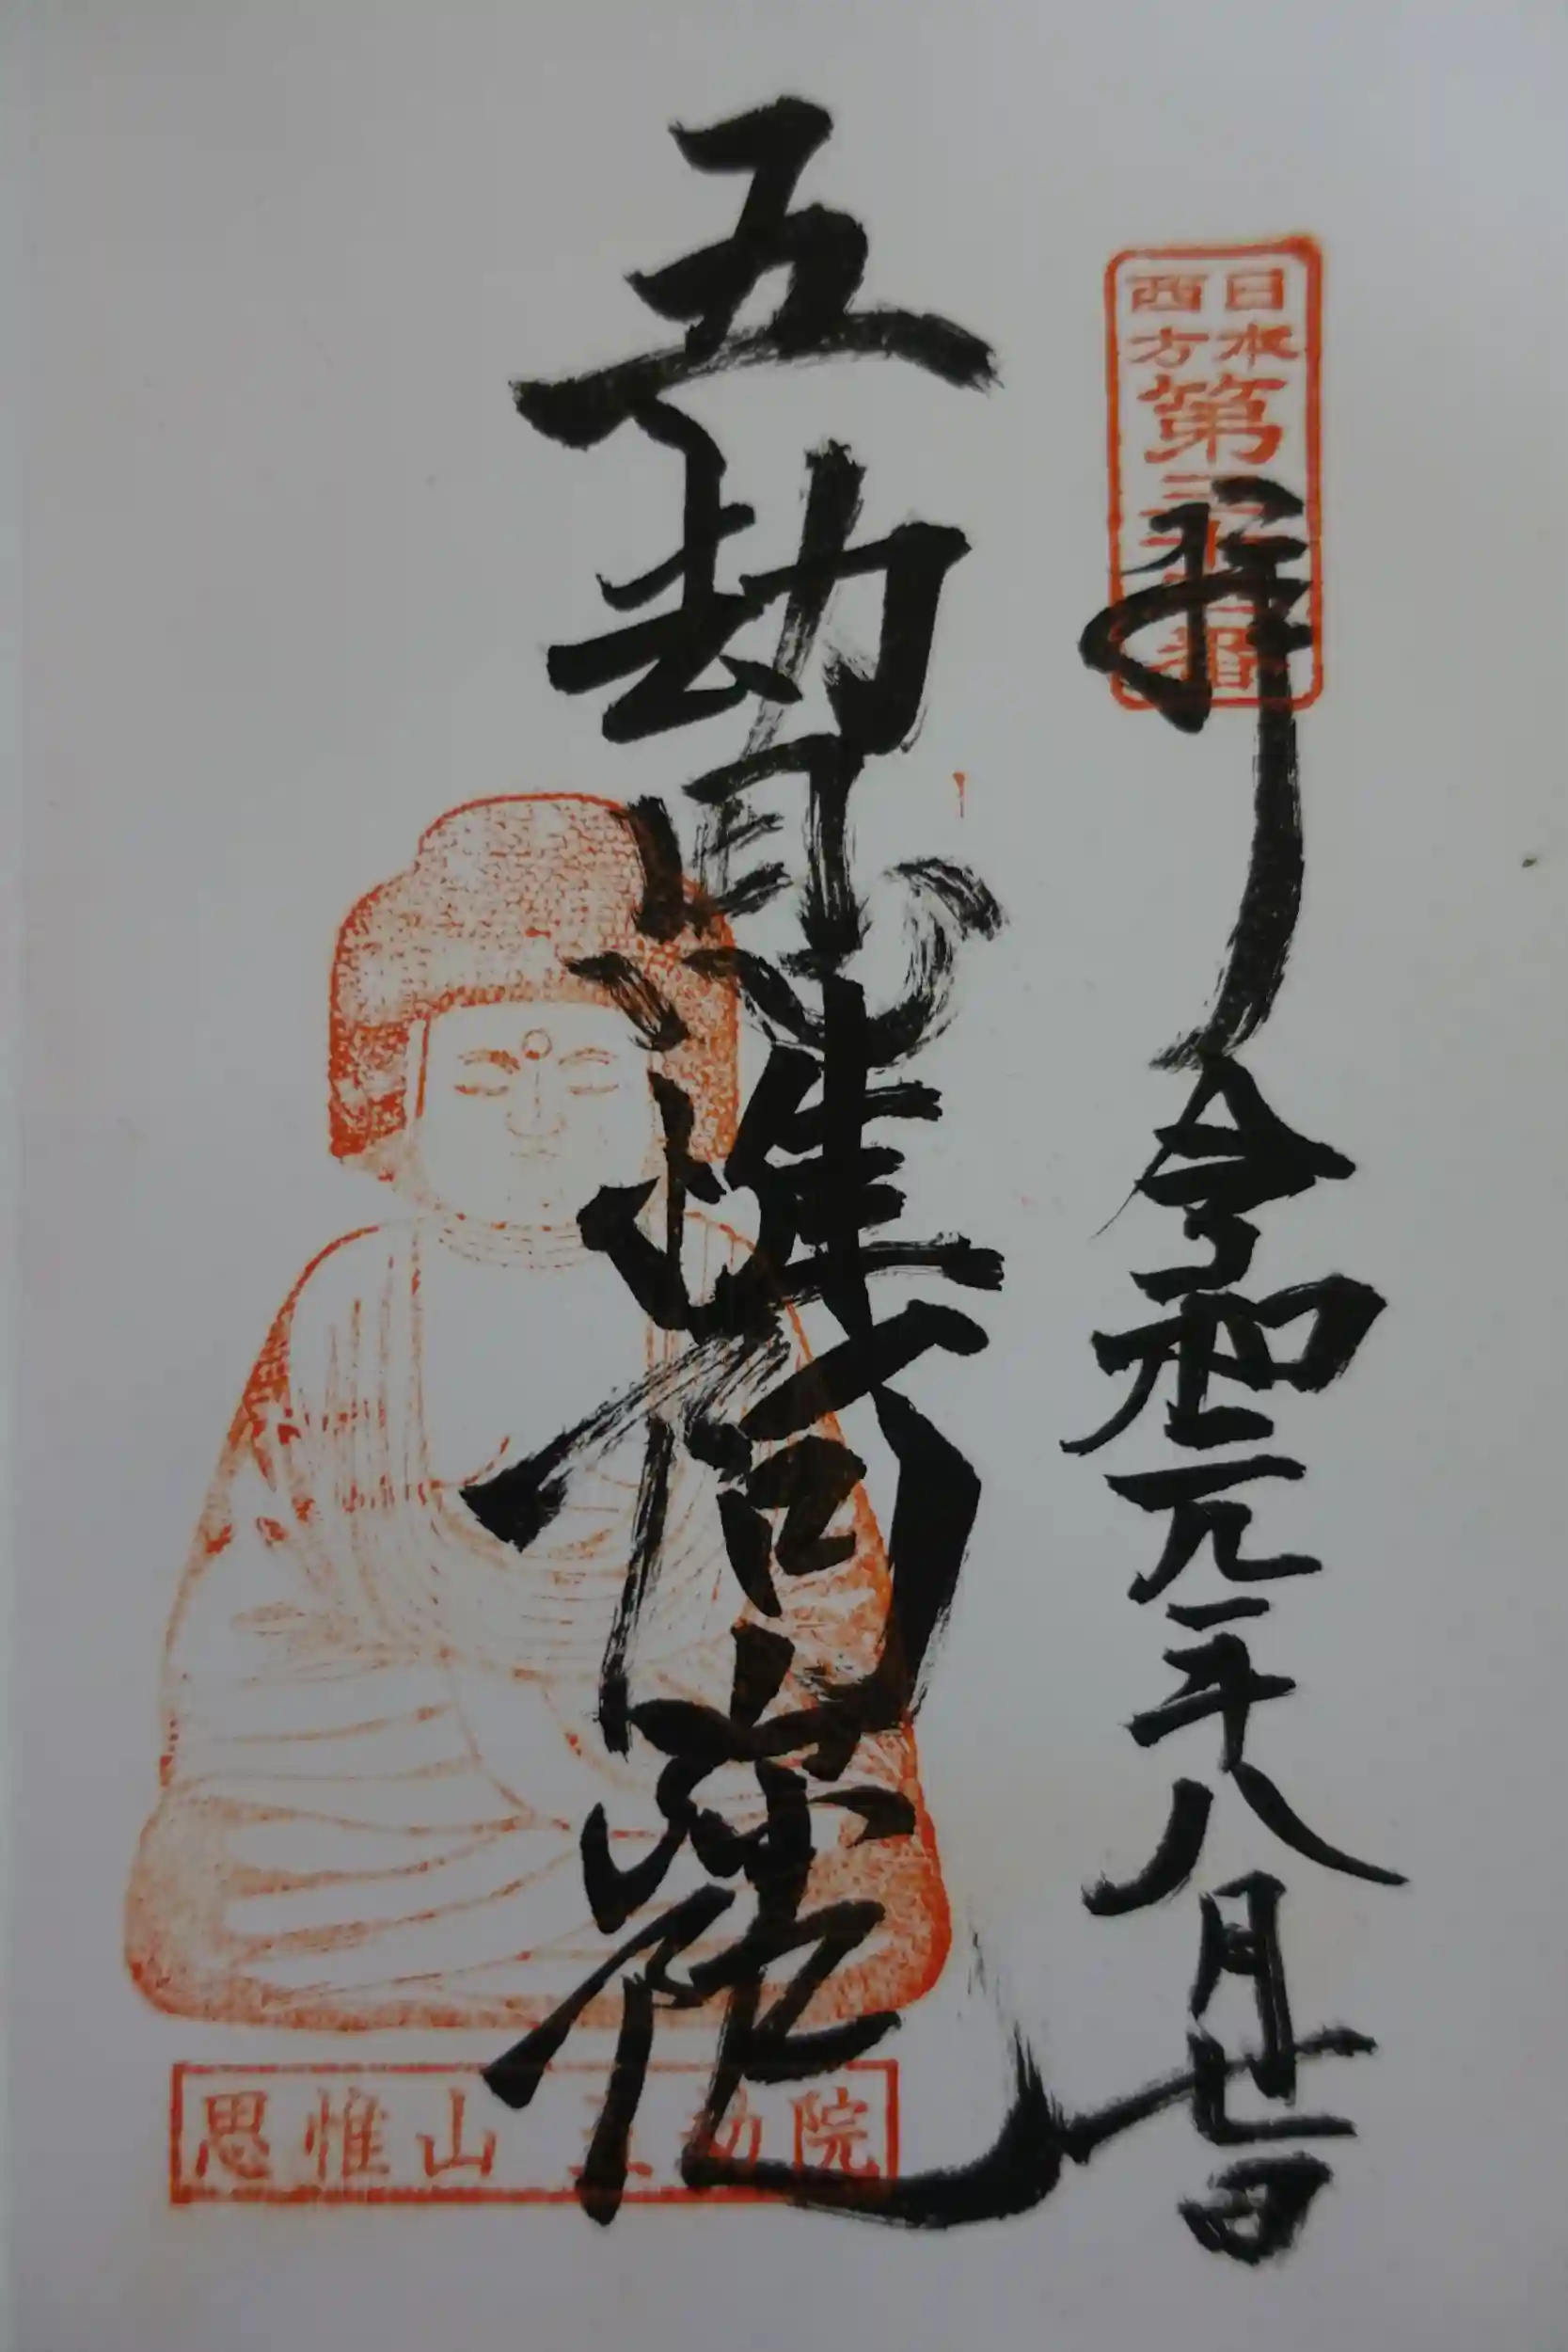 日本
西方
第三十 番
拝 令和元年八月七日
五劫思惟阿弥陀
思惟山 五劫院